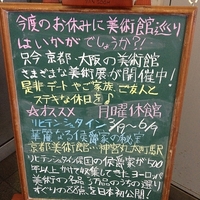 今度のお休みに美術館巡り
はいかがでしょうか?!
只今 京都・大阪の美術館
さまざまな美術展が開催中!
是非デートやご家族、ご友人と
ステキな休日を♪
☆オススメ 月曜休館
リヒテンシュタイン
華麗なる侯爵家の秘宝
京都美術館…神宮丸太町駅
リヒテンシュタイン侯国の侯爵家が500
年以上かけて収集してきたヨーロッパ
美術すつ名品
すぐりの88点を日本初公開!